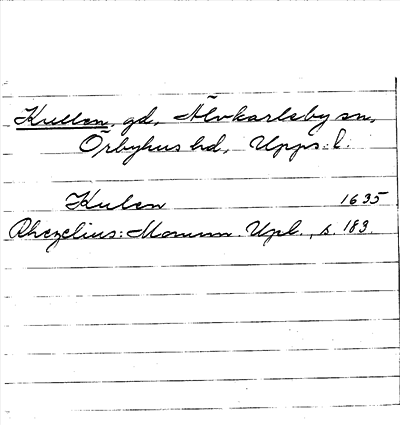 Kullen, gd, Älvkarleby sn,
Örbyhus hd, Upps. l.
Kulen 1635
Rhezelius: Monum. Upl., s. 183.